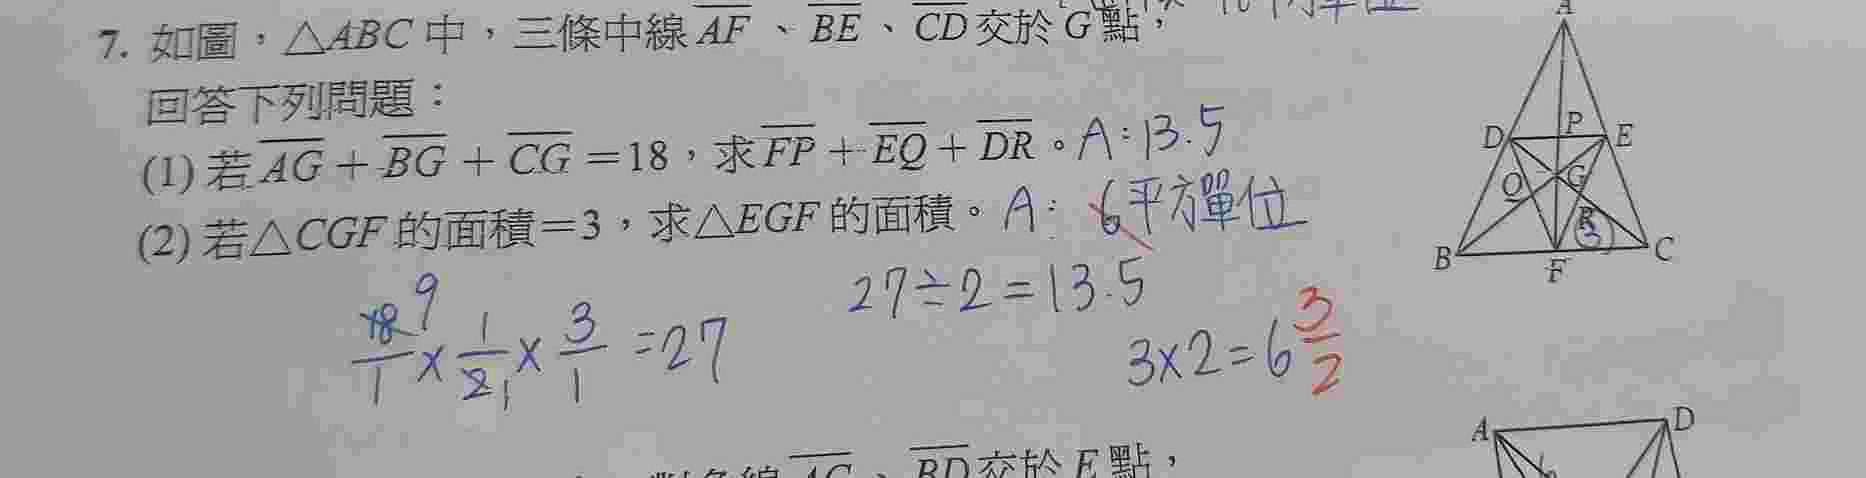 7. 如圖，△ABC 中，三條中線 AF、BE、CD 交於 G 點，
回答下列問題：
(1) 若 AG + BG + CG = 18，求 FP + EQ + DR。A：13.5
(2) 若△CGF 的面積=3，求△EGF 的面積。A：6平方單位
18 9
1 × 1 2 1 × 3 1 = 27
27÷2=13.5
3×2=6 3 2
A
D P E
Q G
R 3
B F C
A D
對角線 AC、BD 交於 E 點，